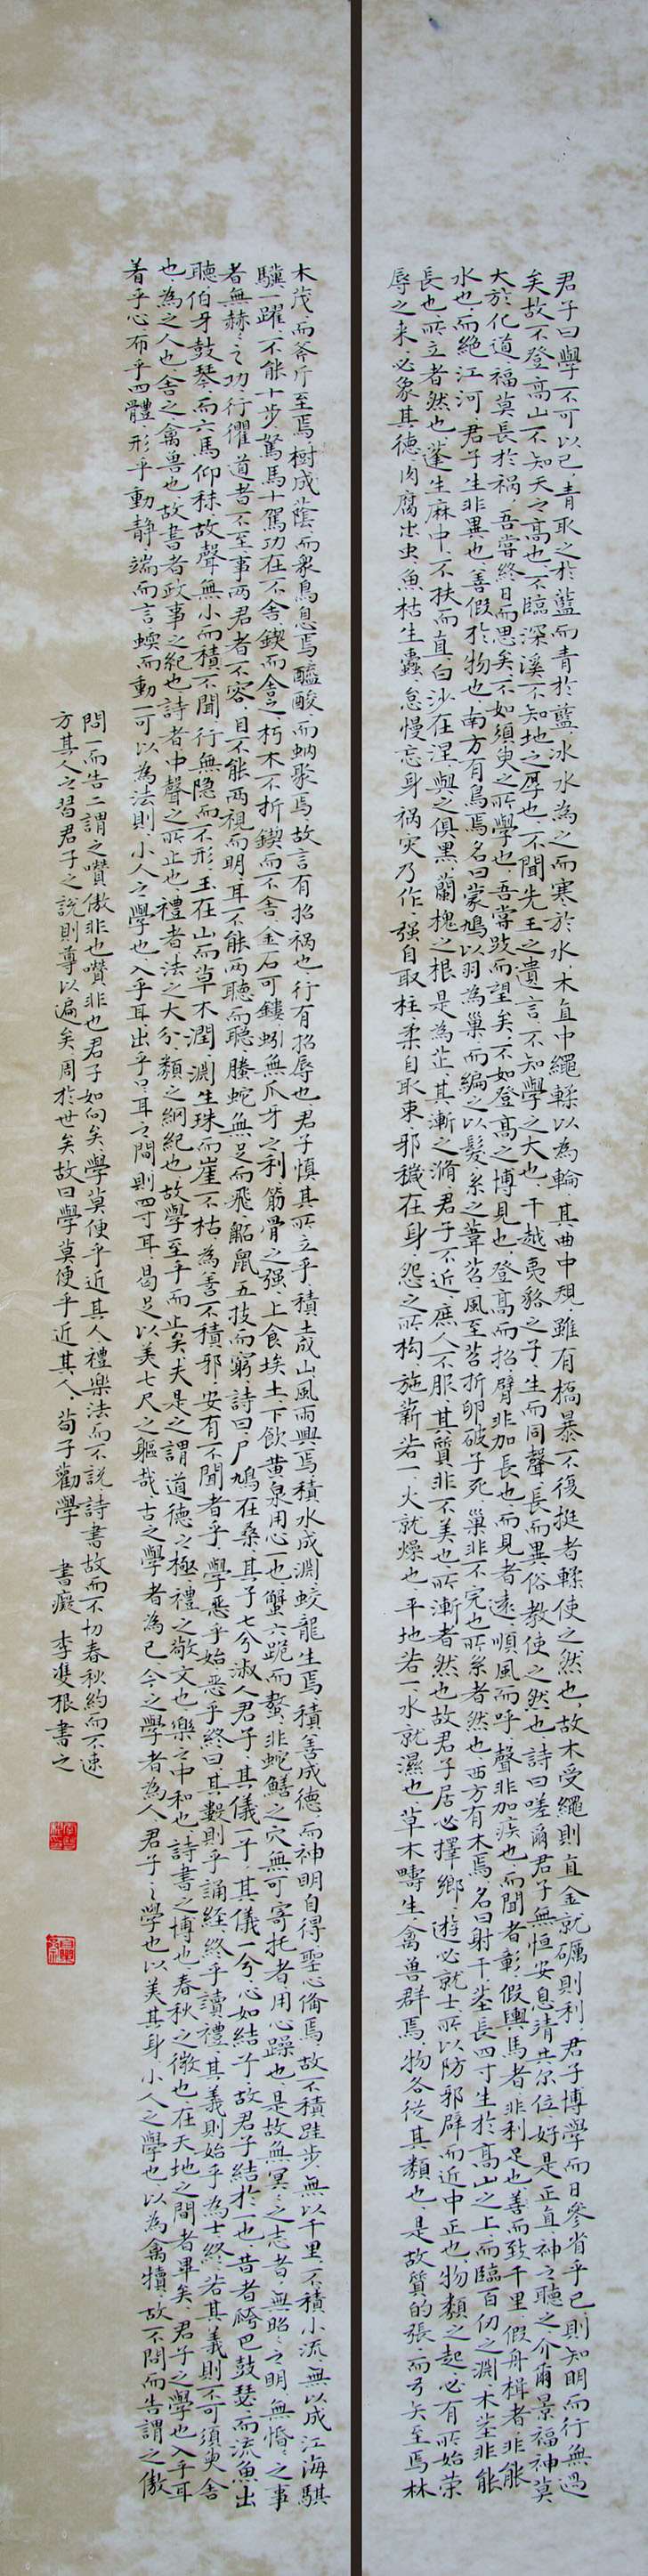 君子曰學不可以已青取之於藍而青於藍冰水為之而寒於水木直中繩輮以為輪其曲中規雖有槁暴不復挺者輮使之然也故木受繩則直金就礪則利君子博學而日參省乎己則知明而行無過
矣故不登高山不知天之高也不臨深溪不知地之厚也不聞先王之遺言不知學之大也干越夷貉之子生而同聲長而異俗教使之然也詩曰嗟爾君子無恒安息靖共尔位好是正直神之聽之介爾景福神莫
大於化道福莫長於祸吾嘗終日而思矣不如須臾之所學也吾嘗跂而望矣不如登高之博見也登高而招臂非加長也而見者遠順風而呼聲非加疾也而聞者彰假輿馬者非利足也善而致千里假舟楫者非能
水也而絕江河君子生非異也善假於物也南方有鳥焉名曰蒙鳩以羽為巢而編之以髮系之葦苕風至苕折卵破子死巢非不完也所系者然也西方有木焉名曰射干莖長四寸生於高山之上而臨百仞之淵木莖非能
長也所立者然也蓬生麻中不扶而直白沙在涅與之俱黑蘭槐之根是為芷其漸之滫君子不近庶人不服其質非不美也所漸者然也故君子居必擇鄉遊必就士所以防邪辟而近中正也物類之起必有所始荣
辱之来必象其德肉腐出虫魚枯生蠹怠慢忘身祸灾乃作强自取柱柔自取束邪穢在身怨之所构施薪若一火就燥也平地若一水就濕也草木疇生禽兽群焉物各從其類也是故質的張而弓矢至焉林
木茂而斧斤至焉樹成蔭而衆鳥息焉醯酸而蚋聚焉故言有招祸也行有招辱也君子慎其所立乎積土成山風雨興焉積水成淵蛟龍生焉積善成德而神明自得聖心备焉故不積跬步無以千里不積小流無以成江海騏
驥一躍不能十步駑馬十駕功在不舍鍥而舍之朽木不折鍥而不舍金石可鏤蚓無爪牙之利筋骨之强上食埃土下飲黄泉用心一也蟹六跪而螯非蛇鱔之穴無可寄托者用心躁也是故無冥之志者無昭之明無惛之事
者無赫之功行衢道者不至事两君者不容目不能两視而明耳不能两聽而聰螣蛇無足而飛鼫鼠五技而窮詩曰尸鳩在桑其子七兮淑人君子其儀一子其儀一兮心如結子故君子結於一也昔者瓠巴鼓瑟而流魚出
聽伯牙鼓琴而六馬仰秣故聲無小而積不聞行無隐而不形玉在山而草木潤淵生珠而崖不枯為善不積邪安有不聞者乎學惡乎始惡乎終曰其數則乎誦經終乎讀禮其義則始乎為士終若其義則不可須臾舍
也為之人也舍之禽兽也故書者政事之紀也詩者中聲之所止也禮者法之大分類之綱紀也故學至乎而止矣夫是之謂道德之極禮之敬文也樂之中和也詩書之博也春秋之微也在天地之間者畢矣君子之學也入乎耳
着乎心布乎四體形乎動静端而言蝡而動一可以為法則小人之學也入乎耳出乎口耳之間則四寸耳曷足以美七尺之軀哉古之學者為己今之學者為人君子之學也以美其身小人之學也以為禽犢故不問而告謂之傲
問一而告二謂之囋傲非也囋非也君子如向矣學莫便乎近其人禮樂法而不説詩書故而不切春秋約而不速
方其人之習君子之説則尊以遍矣周於世矣故曰學莫便乎近其人荀子勸學 書癡 李雙根書之